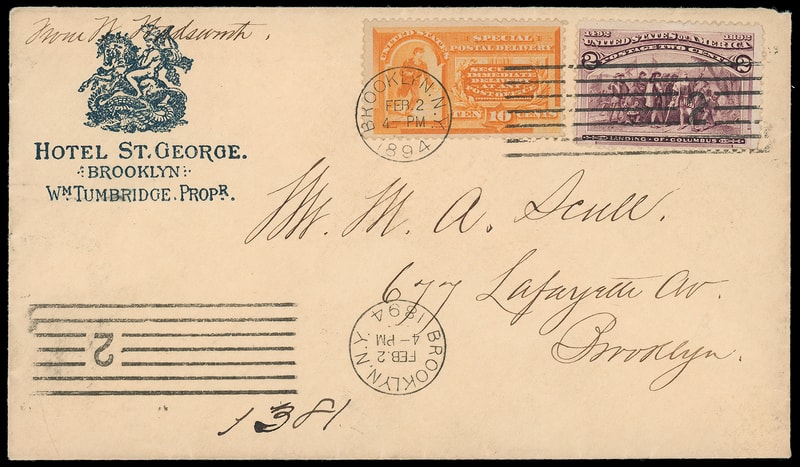 From W. Hadsworth.
HOTEL ST. GEORGE.
BROOKLYN
WM TUMBRIDGE. PROPR.
SPECIAL
POSTAL DELIVERY
SECURES
IMMEDIATE
DELIVERY
AT ANY
POST OFFICE
TEN 10 CENTS
1492 1892
UNITED STATES OF AMERICA
POSTAGE TWO CENTS
2 2
LANDING OF COLUMBUS
BROOKLYN. N.Y.
FEB. 2
4 - PM
1894
2
Mr. M. A. Scull.
677 Lafayette Av.
Brooklyn.
BROOKLYN. N.Y.
FEB. 2
4 - PM
1894
2
1381